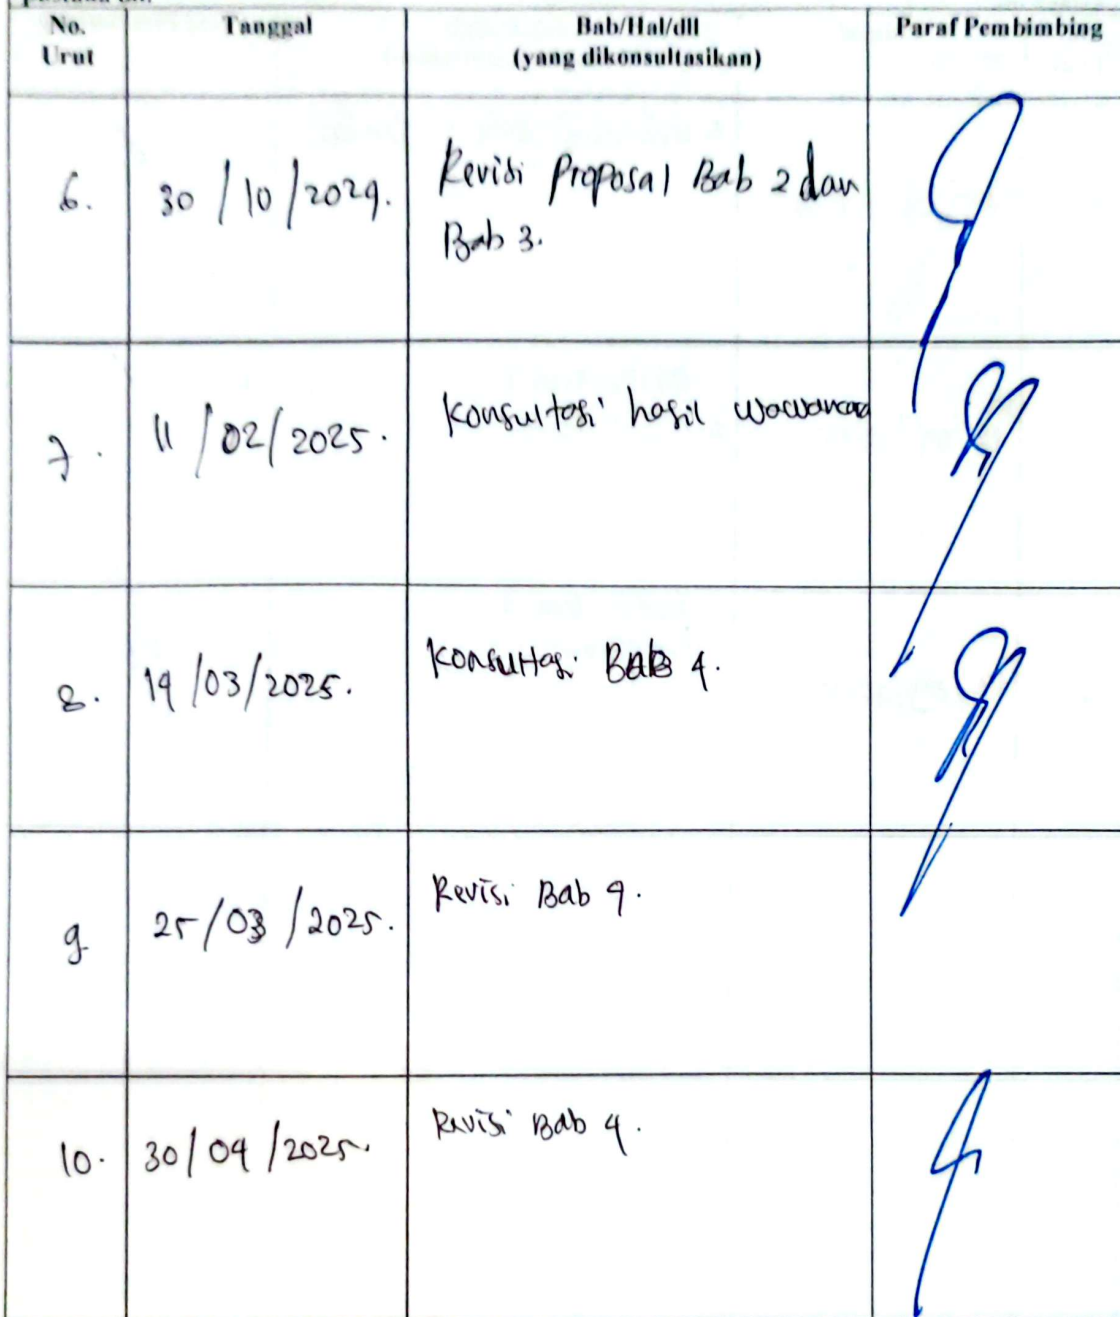 No. Urut Tanggal Bab/Hal/dll (yang dikonsultasikan) Paraf Pembimbing
6. 30/10/2024. Revisi Proposal Bab 2 dan
Bab 3.
7. 11/02/2025. Konsultasi hasil wawancara
8. 14/03/2025. Konsultasi Bab 4.
9 25/03/2025. Revisi Bab 4.
10. 30/04/2025. Revisi Bab 4.